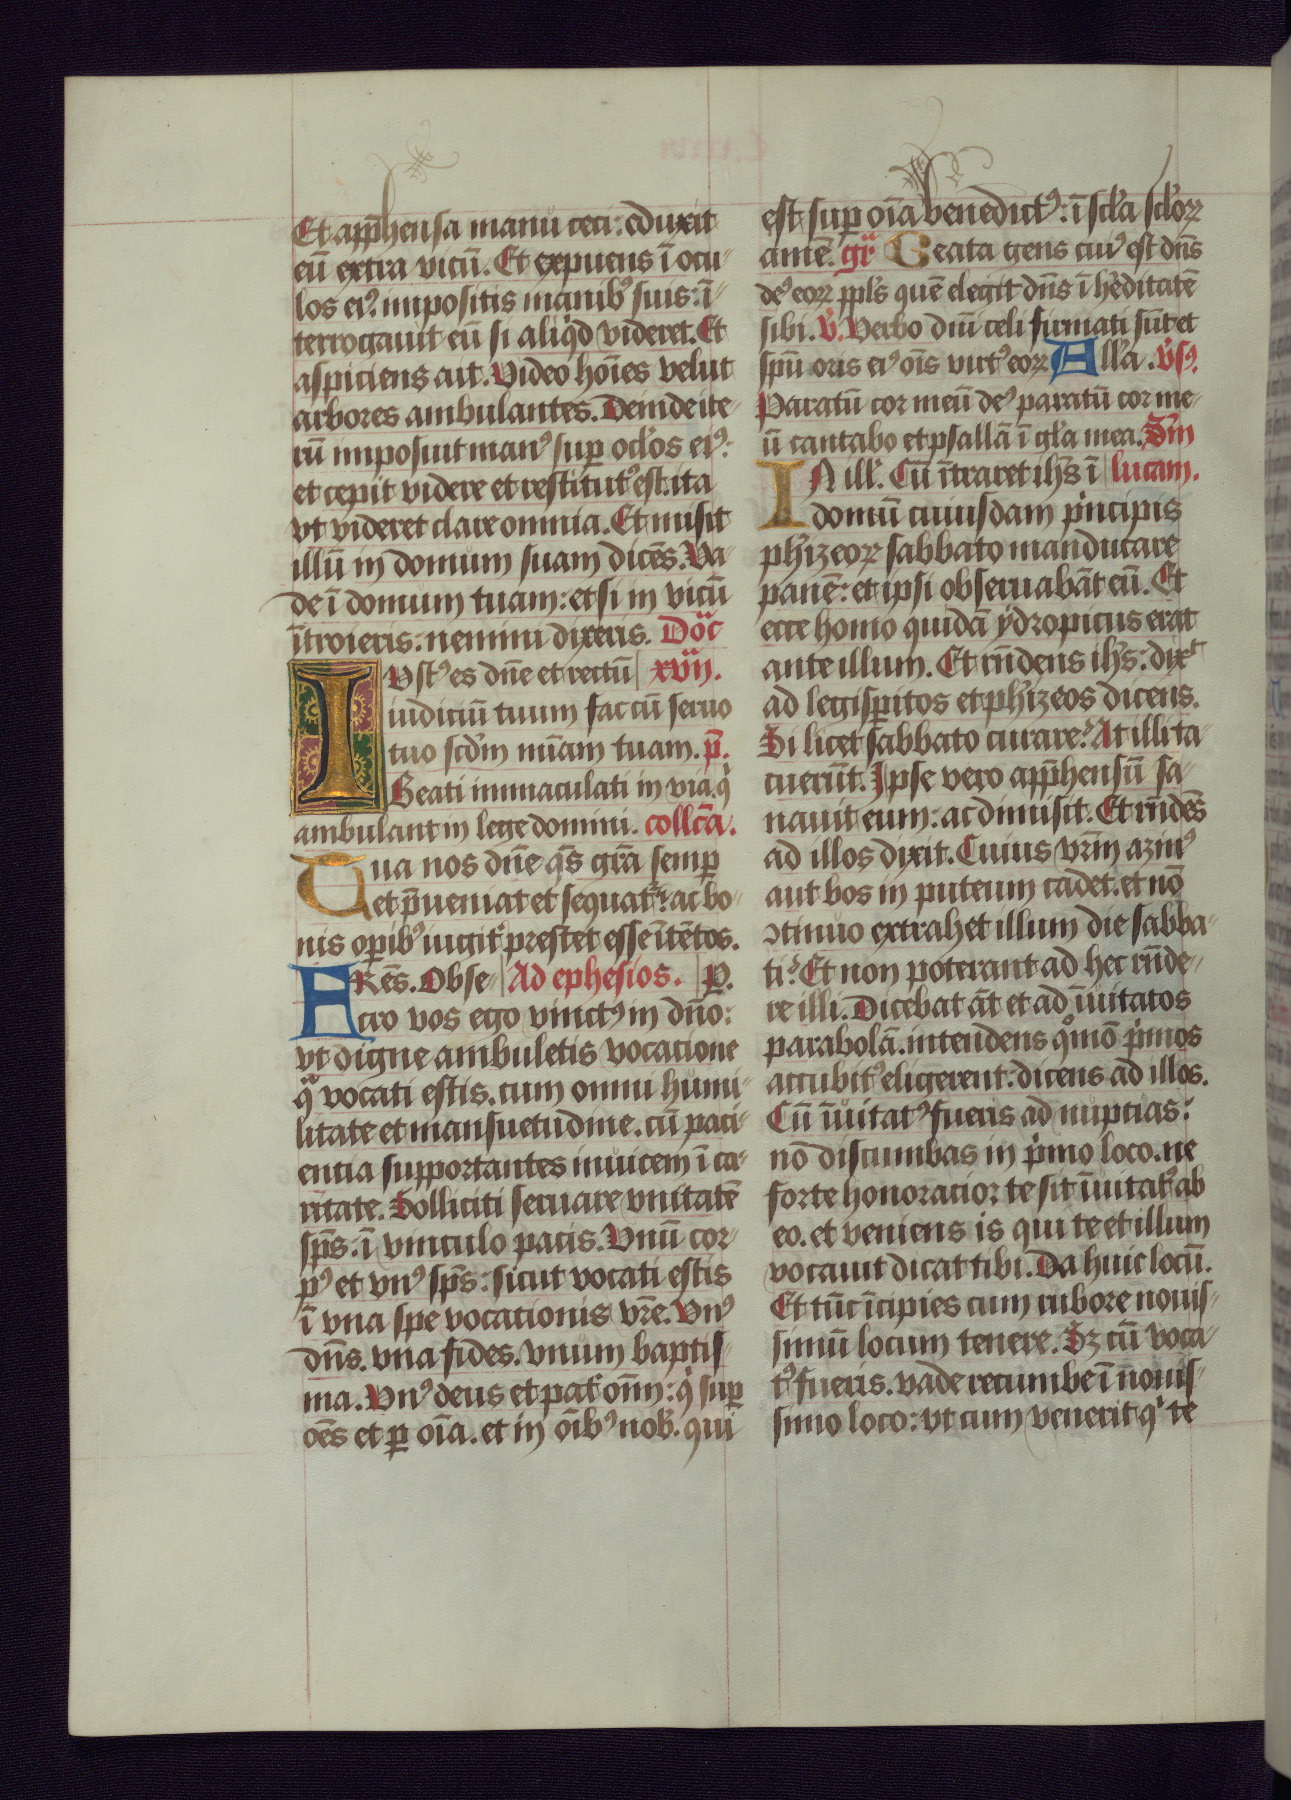 Et app̄hensa manu ceci: eduxit
eū extra vicū. Et expuens ī ocu-
los eiꝰ impositis manibꝰ suis: ī-
terrogauit eū si aliqͥd videret. Et
aspiciens ait. Video hoīes velut
arbores ambulantes. Deinde ite-
rū imposuit manꝰ suꝑ oclōs eiꝰ:
et cepit videre et restitutꝰ est. ita
vt videret clare omnia. Et misit
illū in domum suam dicēs. Va-
de ī domum tuam: et si in vicū
ītroieris: nemini dixeris. Doc̄
Vstꝰ es dn̄e et rectū xvij.
I iudiciū tuum fac cū seruo
tuo scd̄m mīam tuam. p̄.
Beati immaculati in via. qͥ
ambulant in lege domini. collc̄a.
Tua nos dn̄e q̄s gr̄a semꝑ
et p̄ueniat et sequatᷣ: ac bo-
nis oꝑibꝰ iugit᾽ prestet esse ītētos.
FRēs. Obse- Ad ephesios. P.
cro vos ego vinctꝰ in dn̄o:
vt digne ambuletis vocatione
qͣ vocati estis. cum omni humi-
litate et mansuetudine. cū paci-
entia supportantes inuicem ī ca-
ritate. Solliciti seruare vnitatē
sp̄s: ī vinculo pacis. Vnū cor-
pꝰ et vnꝰ sp̄s: sicut vocati estis
ī vna spe vocationis vr̄e. Vnꝰ
dn̄s. vna fides. vnum baptis-
ma. Vnꝰ deus et pat᾽ om̄: qͥ suꝑ
oēs et ꝑ oīa. et in oībꝰ nob̄. qui
est suꝑ oīa benedictꝰ: ī scl̄a scl̄oꝝ
amē. gr̄ Beata gens cuiꝰ est dn̄s
deꝰ eoꝝ ppl̄s quē elegit dn̄s ī h̓editatē
sibi. v̓. Verbo dn̄i celi firmati sūt et
sp̄u oris eiꝰ oīs virtꝰ eoꝝ All̄a. v̓sꝰ.
Paratū cor meū deꝰ paratū cor me-
ū cantabo et psallā ī gl̄a mea. Scd̄m
IN ill̓. Cū ītraret ih̄s ī lucam.
domū cuiusdam pͥncipis
ph̓izeoꝝ sabbato manducare
panē: et ipsi obseruabāt eū. Et
ecce homo quidā ydropicus erat
ante illum. Et rn̄dens ih̄s: dixͭ
ad legisꝑitos et ph̓izeos dicens.
Si licet sabbato curare? At illi ta-
cuerūt. Ipse vero app̄hensū sa-
nauit eum: ac dimisit. Et rn̄dēs
ad illos dixit. Cuius vr̄m azinꝰ
aut bos in puteum cadet. et nō
ꝯtinuo extrahet illum die sabba-
ti? Et non poterant ad hec rn̄de-
re illi. Dicebat āt et ad īuitatos
parabolā. intendens qͦmō pͥmos
accubitꝰ eligerent: dicens ad illos.
Cū īuitatꝰ fueris ad nuptias:
nō discumbas in pͥmo loco. ne
forte honoratior te sit īuitatꝰ ab
eo. et veniens is qui te et illum
vocauit dicat tibi. Da huic locū.
Et tūc īcipies cum rubore nouis-
simū locum tenere. Sꝫ cū voca-
tꝰ fueris. vade recumbe ī nouis-
simo loco: vt cum venerit qͥ te